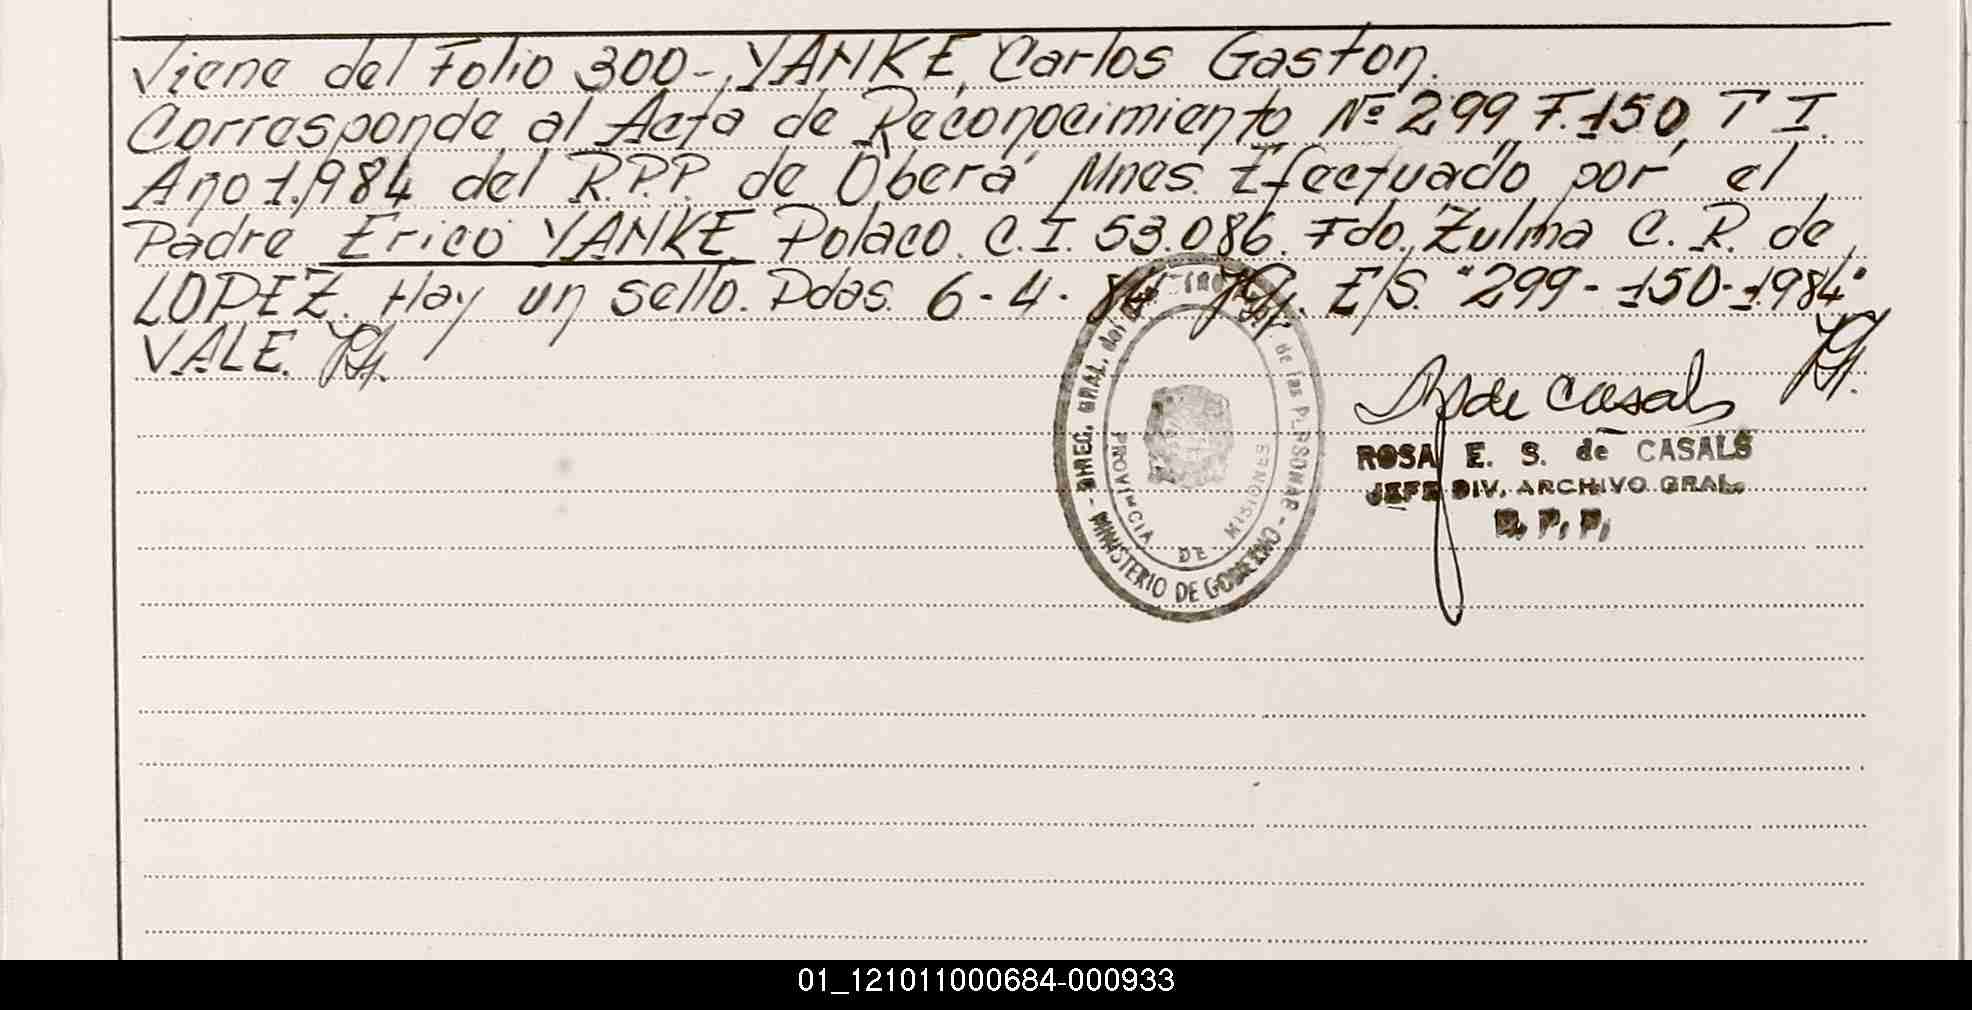 Viene del Folio 300-, YANKE, Carlos Gaston.
Corresponde al Acta de Reconocimiento Nº 299 F. 150, T I.
Año 1.984 del R.P.P. de Oberá Mnes. Efectuado por el
Padre Erico YANKE. Polaco. C.I. 53.086. Fdo. Zulma C. R. de
LOPEZ. Hay un sello. Pdas. 6-4-84. E/S. "299-150-1.984"
VALE.
de Casals
ROSA E. S. de CASALS
JEFE DIV. ARCHIVO GRAL.
R. P. P.
DIREC. GRAL. del de las PERSONAS - MINISTERIO DE GOBIERNO -
PROVINCIA DE MISIONES
01_121011000684-000933